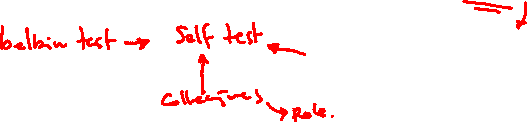 belbin test → Self test
Colleagues → Role.